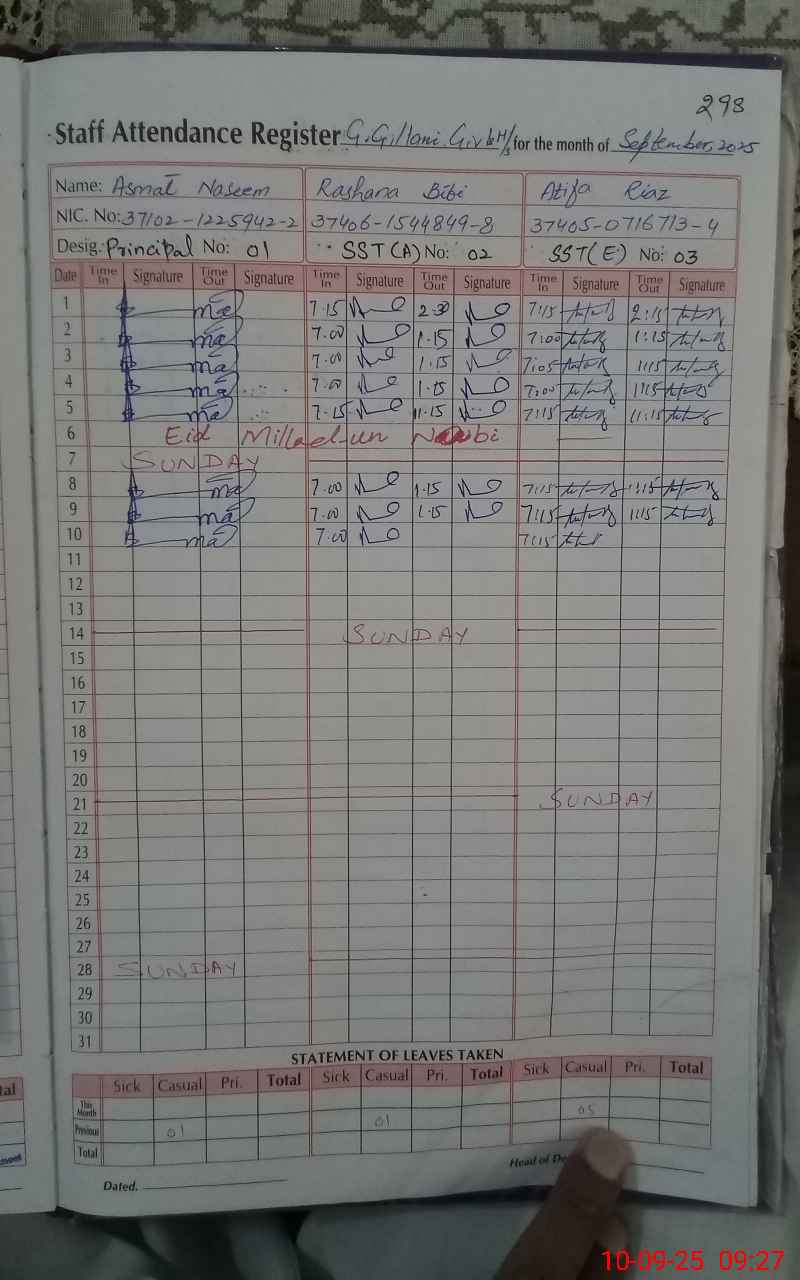 293
Staff Attendance Register G. Gillani G. V for the month of September 2025
Name: Asmat Naseem Rashana Bibi Atifa Riaz
NIC. No: 37102-1225942-2 37406-1544849-8 37405-0716713-4
Desig: Principal No: 01 SST(A) No: 02 SST(E) No: 03
Date Time In Signature Time Out Signature Time In Signature Time Out Signature Time In Signature Time Out Signature
1 7.15 2.30 7:15 2:15
2 7.00 1.15 7:00 1:15
3 7.00 1.15 7:05 1:15
4 7.00 1.15 7:00 1:15
5 7.15 11.15 7:15 11:15
6 Eid Millad-un Nabi
7 SUNDAY
8 7.00 1.15 7:15 1:15
9 7.00 1.15 7:15 1:15
10 7.00 7:15
11
12
13
14 SUNDAY
15
16
17
18
19
20
21 SUNDAY
22
23
24
25
26
27
28 SUNDAY
29
30
31
STATEMENT OF LEAVES TAKEN
Sick Casual Pri. Total Sick Casual Pri. Total Sick Casual Pri. Total
This Month 05
Previous 01 01
Total
Dated. Head of
10-09-25 09:27